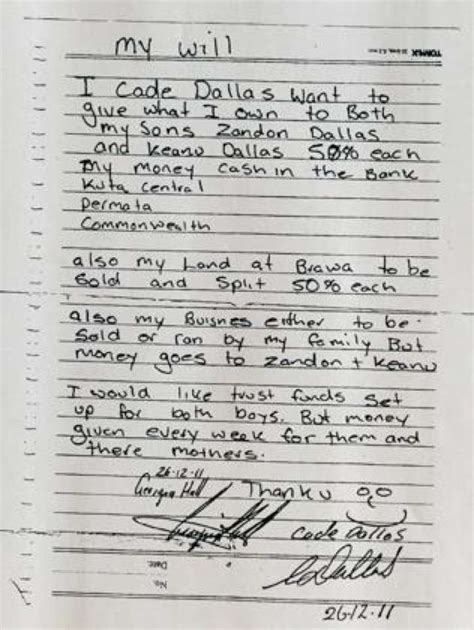 my will
TOMAX
I Cade Dallas want to
give what I own to Both
my Sons Zandon Dallas
and Keanu Dallas 50% each
my money cash in the Bank
Kuta Central
Permata
Commonwealth
also my Land at Brawa to be
Sold and Split 50% each
also my Buisnes either to be
Sold or ran by my family But
money goes to zandon + Keanu
I would like trust funds set
up for both boys. But money
given every week for them and
there mothers.
26-12-11
Georgia Hall Thank u
Cade Dallas
CDallas
Date
No.
26.12.11